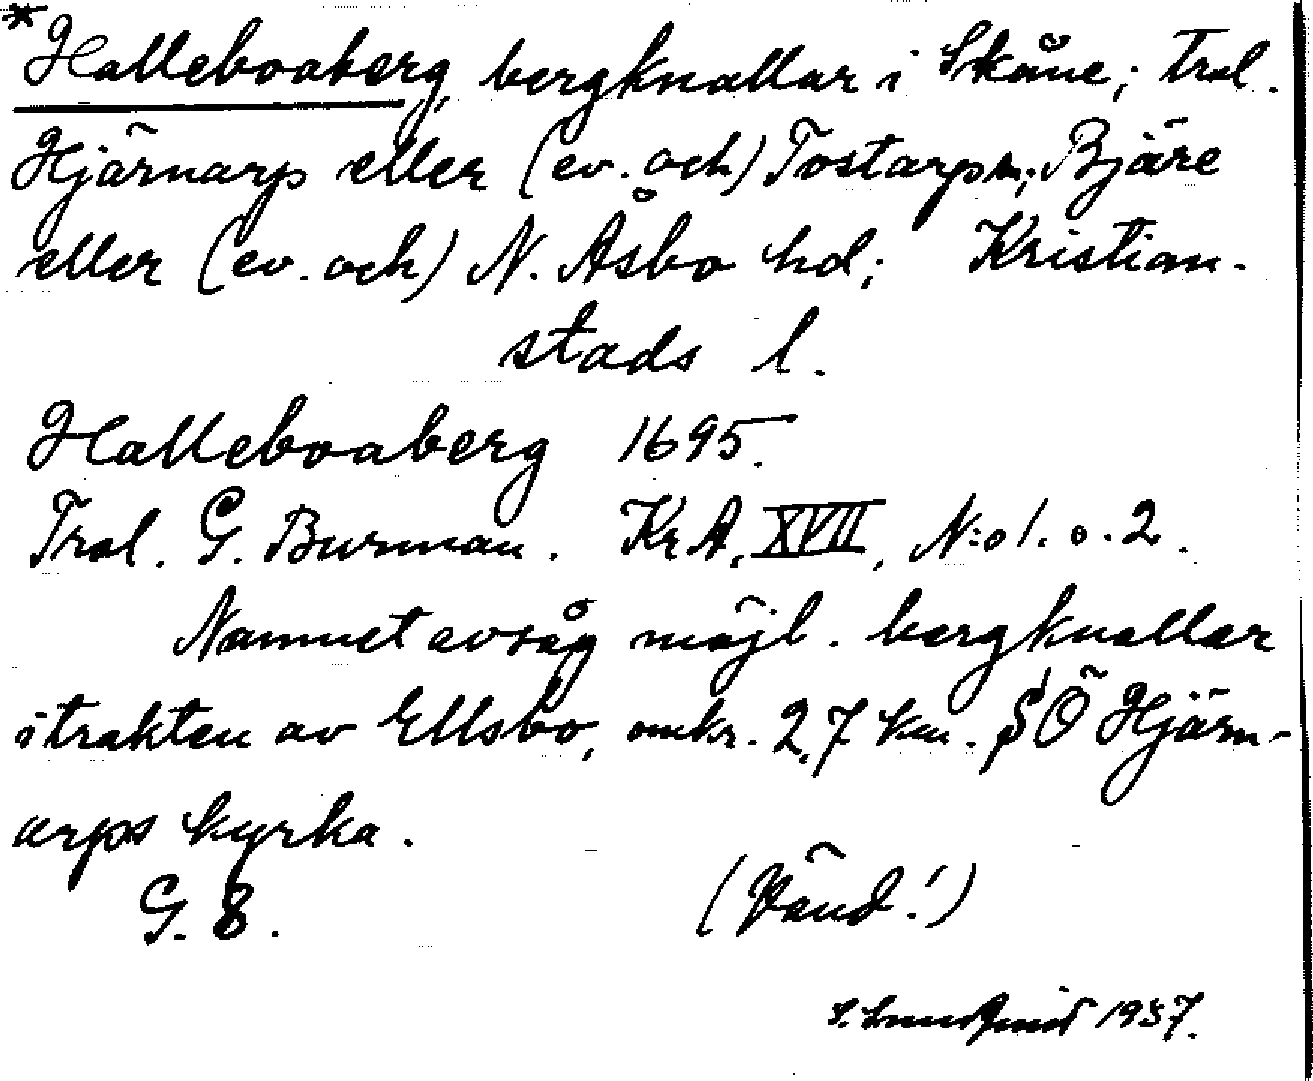 *Halleboaberg, bergknallar i Skåne; trol.
Hjärnarp eller (ev. och) Tostarps sn; Bjäre
eller (ev. och) N. Åsbo hd; Kristian-
stads l.
Halleboaberg 1695.
Trol. G. Burman. KrA, XVII, N:o 1. o. 2.
Namnet avsåg möjl. bergknallar
i trakten av Ellsbo, omkr. 2,7 km. SÖ Hjärn-
arps kyrka.
G. 8. (Vänd!)
1937.